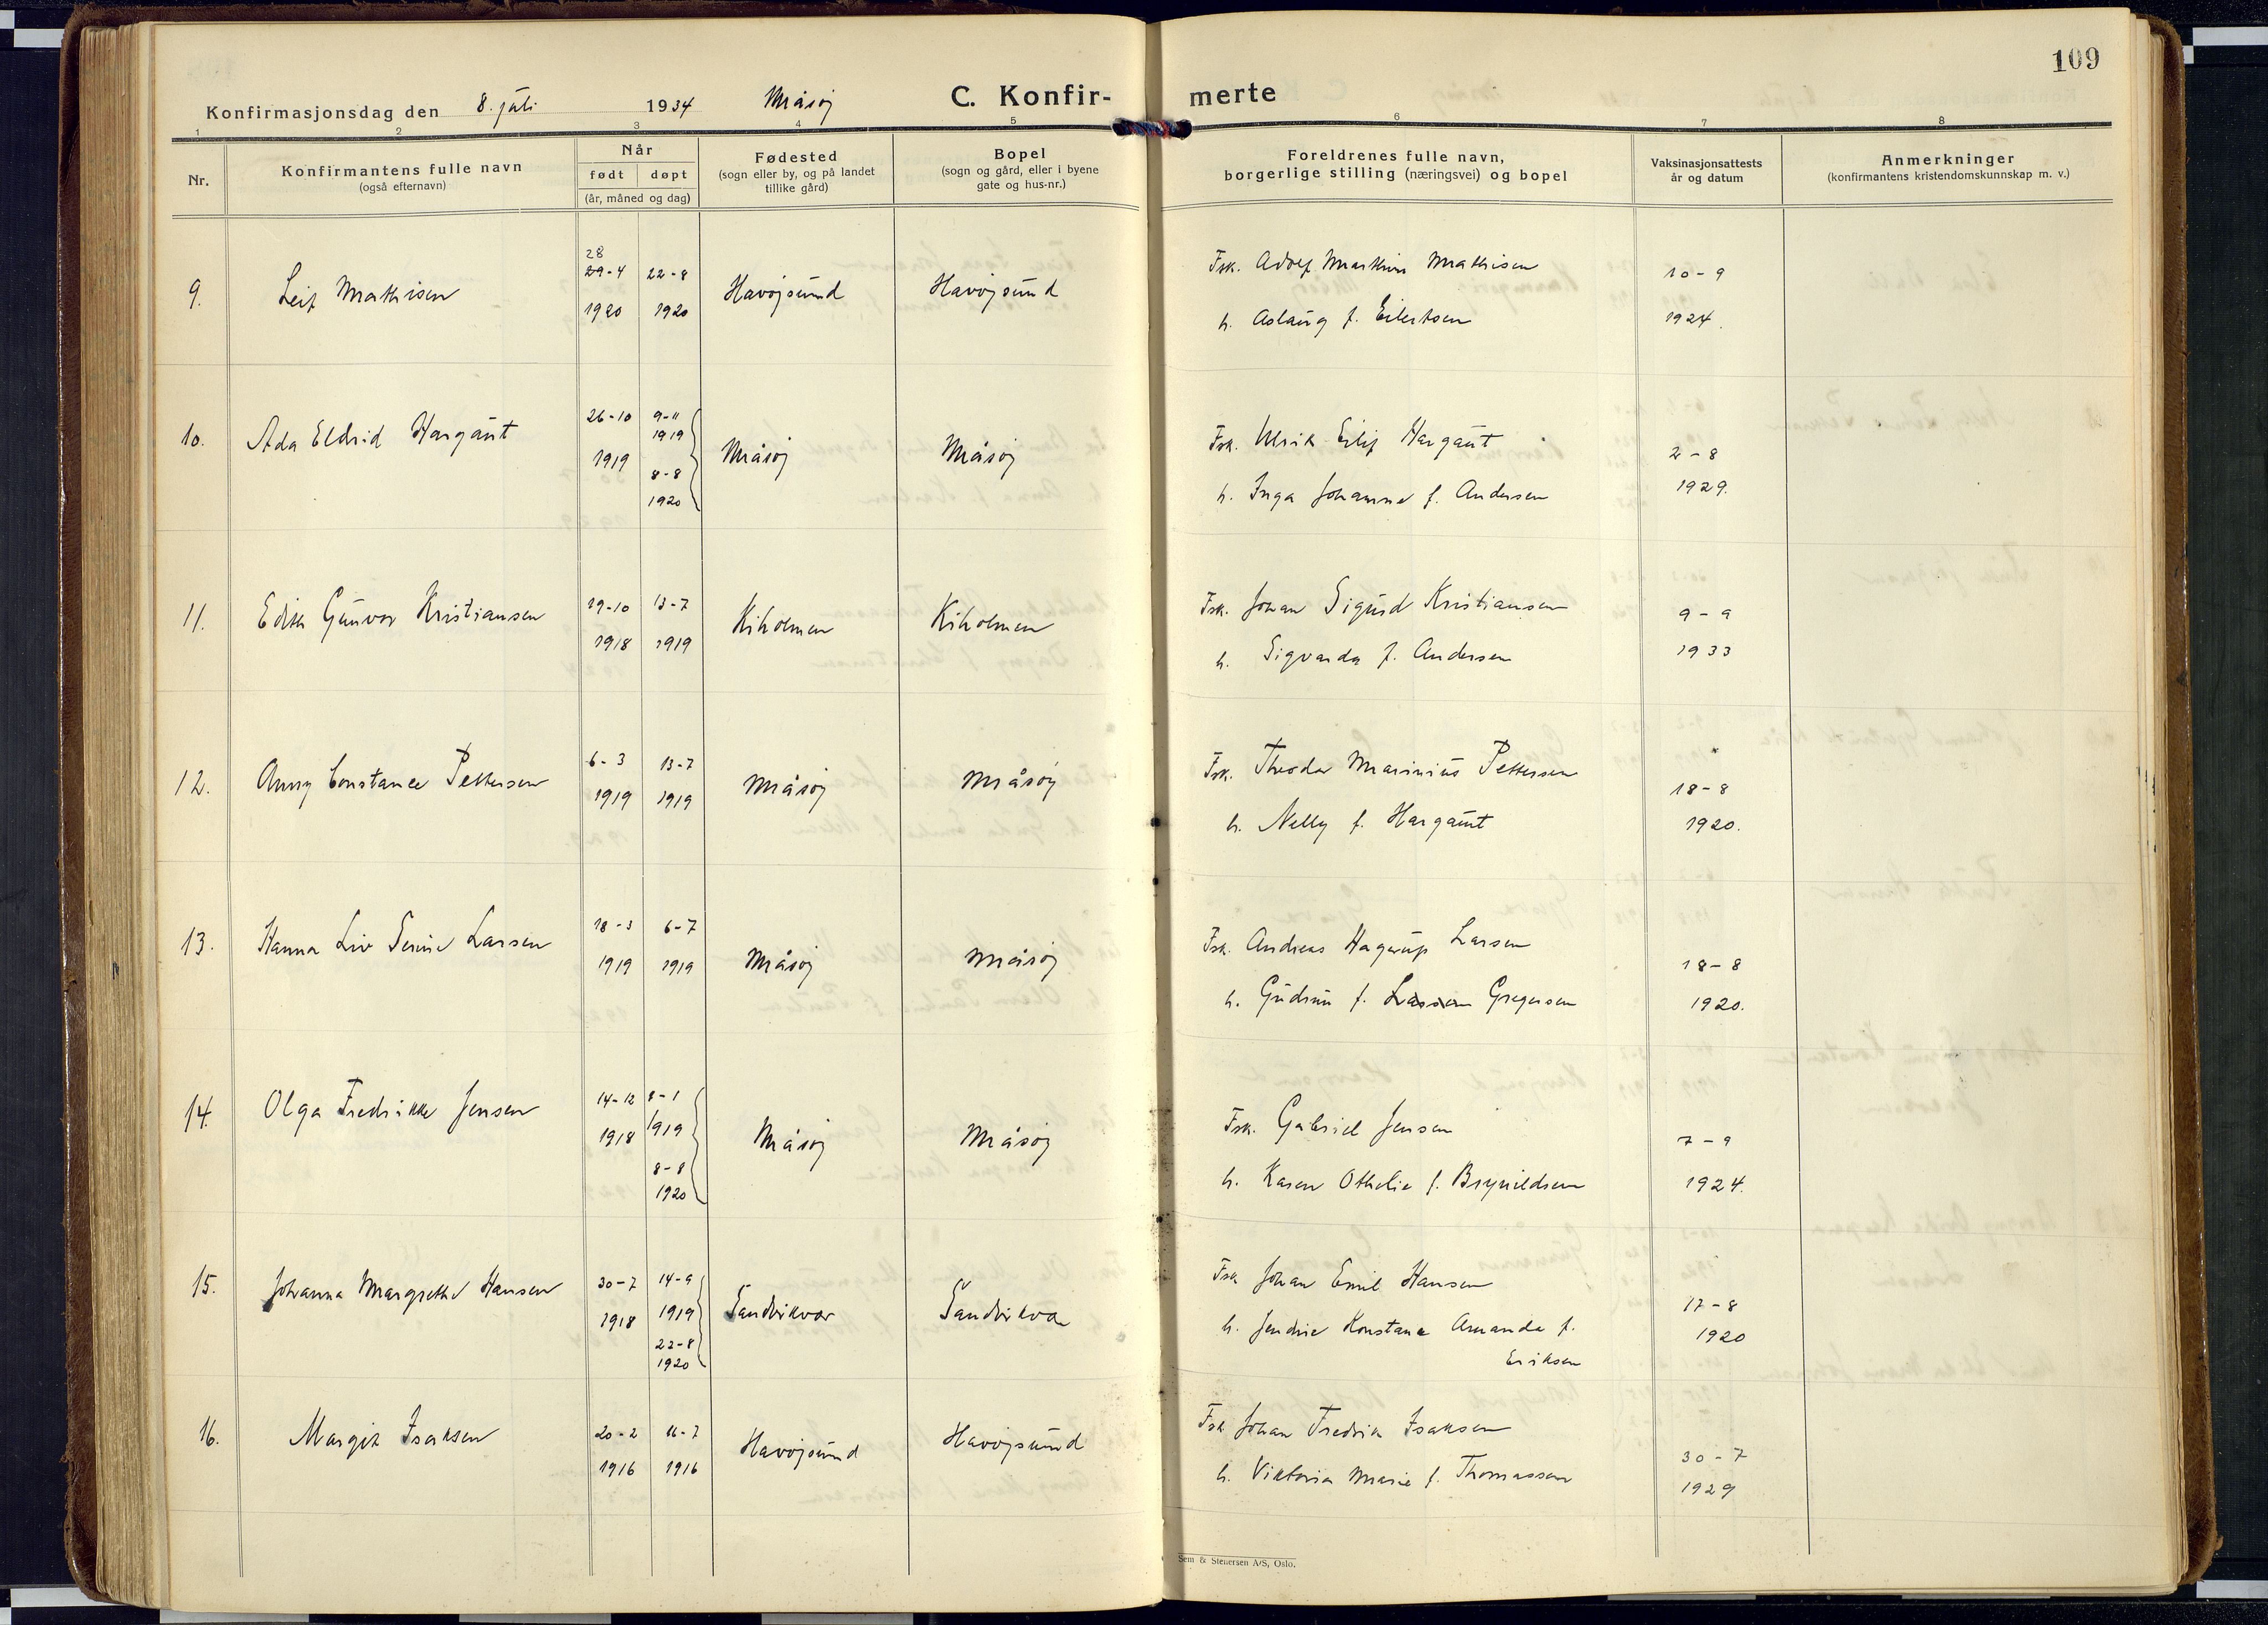 109
Konfirmasjonsdag den 8. juli 1934 Måsøy C. Konfir- merte
1 2 3 4 5 6 7 8
Nr.
Konfirmantens fulle navn
(også efternavn)
Når
født døpt
(år, måned og dag)
Fødested
(sogn eller by, og på landet
tillike gård)
Bopel
(sogn og gård, eller i byene
gate og hus-nr.)
Foreldrenes fulle navn,
borgerlige stilling (næringsvei) og bopel
Vaksinasjonsattests
år og datum
Anmerkninger
(konfirmantens kristendomskunnskap m. v.)
28
9. Leif Mathisen 29-4 22-8 Havøysund Havøysund Fsk. Adolf Martin Mathisen 10-9
1920 1920 h. Aslaug f. Eilertsen 1924.
10. Ada Eldrid Hargaut 26-10 9-11 Måsøy Måsøy Fsk. Ulrik Eilif Hargaut 2-8
1919
1919 8-8 h. Inga Johanne f. Andersen 1929.
1920
11. Edith Gunvor Kristiansen 29-10 13-7 Kiholmen Kiholmen Fsk. Johan Sigurd Kristiansen 9-9
1918 1919 h. Sigvarda f. Andersen 1933
12. Anny Constance Pettersen 6-3 13-7 Måsøy Måsøy Fsk. Theodor Marinius Pettersen 18-8
1919 1919 h. Nelly f. Hargaut 1920.
13. Hanna Liv Serine Larsen 18-3 6-7 Måsøy Måsøy Fsk. Andreas Hagerup Larsen 18-8
1919 1919 h. Gudrun f. Larsen Gregersen 1920.
14. Olga Fredrikke Jensen 14-12 8-1 Måsøy Måsøy Fsk. Gabriel Jensen 7-9
1918 1919
8-8 h. Karen Othelie f. Brynildsen 1924.
1920
15. Johanna Margrethe Hansen 30-7 14-9 Sandvikvær Sandvikvær Fsk Johan Emil Hansen 17-8
1918 1919 h. Jendine Konstanse Amanda f. 1920
22-8 Eriksen
1920
16. Margit Isaksen 20-2 16-7 Havøysund Havøysund Fsk Johan Fredrik Isaksen 30-7
1916 1916 h. Viktoria Marie f. Thomassen 1929
Sem & Stenersen A/S, Oslo.